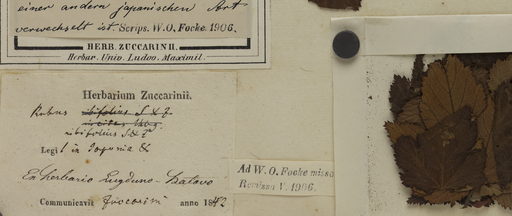 einer andern japanischen Art
verwechselt ist. Scrips. W. O. Focke. 1906.
HERB. ZUCCARINII.
Herbar. Univ. Ludov. Maximil.
Herbarium Zuccarinii.
Rubus
ribifolius S & Z
Legit in Japonia
Ex herbario Lugduno-Batavo
Communicavit anno 1842
Ad W. O. Focke missa
Remissa V. 1906.